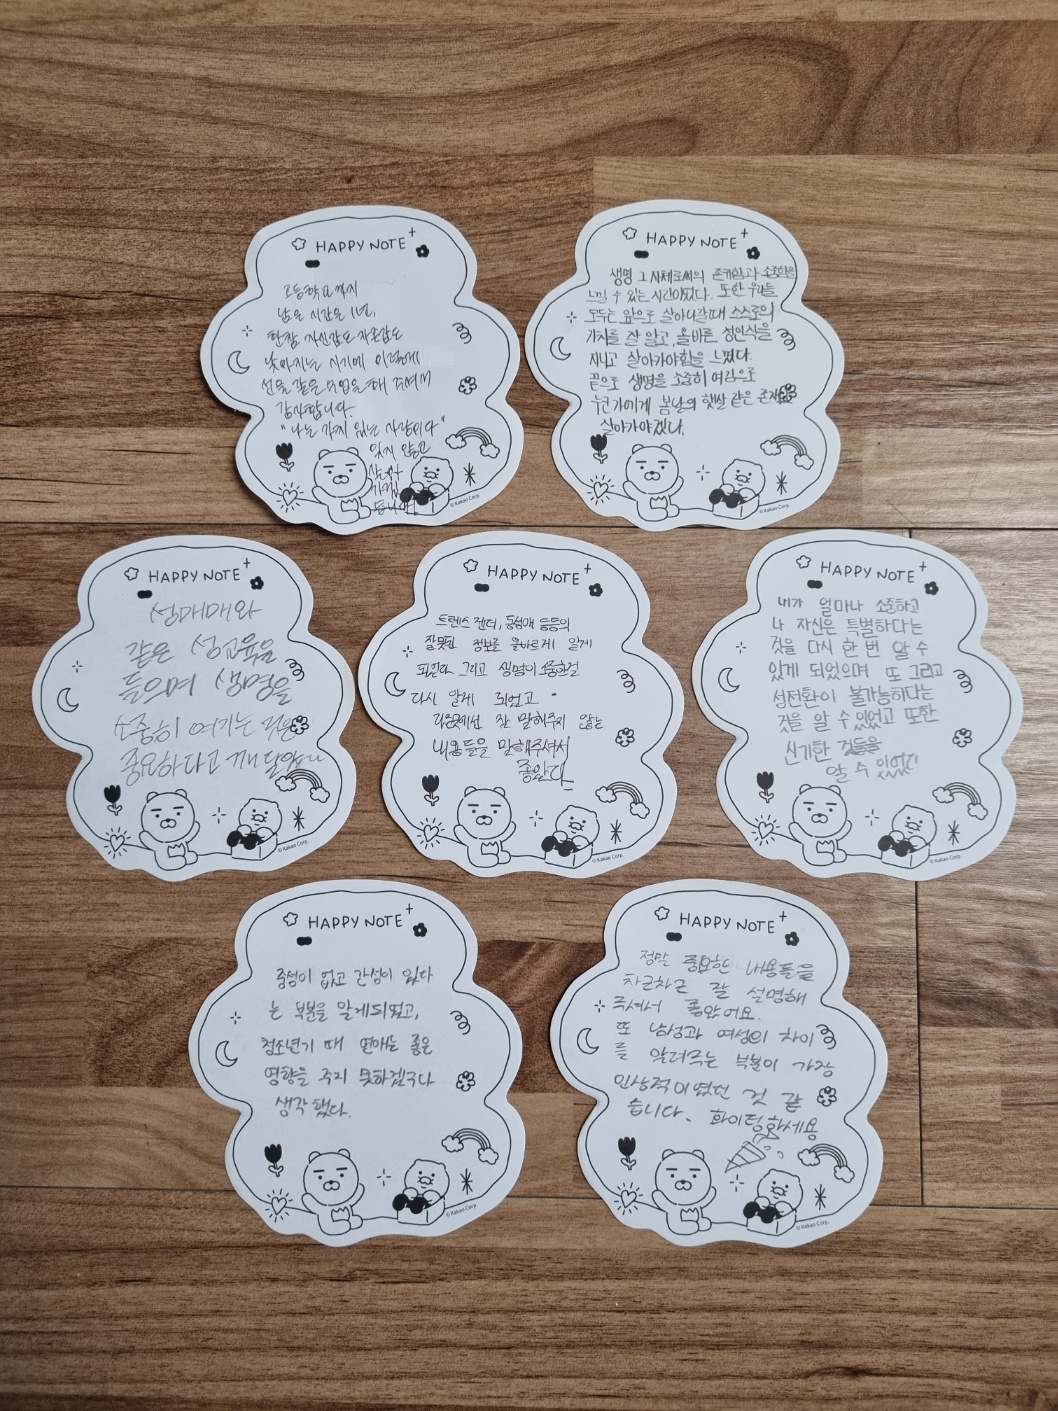 HAPPY NOTE
고등학교까지
남은 시간은 1년,
한참 자신감도 자존감도
낮아지는 시기에 이렇게
선물 같은 수업을 해 주셔서
감사합니다.
"나는 가치 있는 사람이다"
잊지 않고
© Kakao Corp.
HAPPY NOTE
생명 그 자체로써의 존귀함과 소중함을
느낄 수 있는 시간이었다. 또한 우리들
모두는 앞으로 살아나갈때 스스로의
가치를 잘 알고, 올바른 성인식을
지니고 살아가야함을 느꼈다.
끝으로 생명을 소중히 여김으로
누군가에게 봄날의 햇살 같은 존재로
살아가야겠다.
© Kakao Corp.
HAPPY NOTE
성매매와
같은 성교육을
들으며 생명을
소중히 여기는 것은
중요하다고 깨달았다
© Kakao Corp.
HAPPY NOTE
트렌스 젠더, 동성애 등등의
잘못된 정보로 올바르게 알게
되었다 그리고 생명이 소중한걸
다시 알게 되었고
다른곳에선 잘 말해주지 않는
내용들을 말해주셔서
좋았다
© Kakao Corp.
HAPPY NOTE
내가 얼마나 소중하고
나 자신은 특별하다는
것을 다시 한 번 알 수
있게 되었으며 또 그리고
성전환이 불가능하다는
것을 알 수 있었고 또한
신기한 것들을
알 수 있었다
© Kakao Corp.
HAPPY NOTE
중성이 없고 간성이 있다
는 부분을 알게되었고,
청소년기 때 연애는 좋은
영향을 주지 못하겠구나
생각했다.
© Kakao Corp.
HAPPY NOTE
정말 중요한 내용들을
차근차근 잘 설명해
주셔서 좋았어요.
또 남성과 여성의 차이
를 알려주는 부분이 가장
인상적이였던 것 같
습니다. 화이팅하세용
© Kakao Corp.